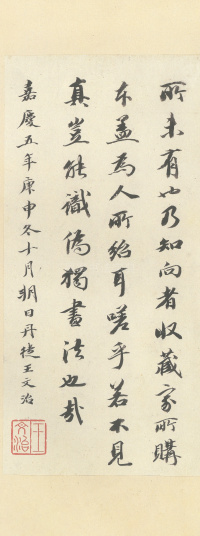 所未有也乃知向者收藏家所購
本蓋為人所紿耳嗟乎若不見
真豈能識偽獨書法也哉
嘉慶五年庚申冬十月朔日丹徒王文治
王文治